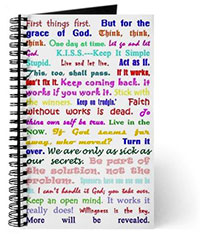 First things first. But for the
grace of God. Think, think,
think. One day at time. let go and let
God. K.I.S.S.--Keep It Simple
Stupid. Live and let live. Act as if.
This, too, shall pass. If it works,
don't fix it. Keep coming back. It
works if you work it. Stick with
the winners. Keep on trudgin'. Faith
without works is dead. To
thine own self be true. Live in the
NOW. If God seems far
away, who moved? Turn it
over. We are only as sick as
our secrets. Be part of
the solution, not the
problem. Sponsors: have one use one be
one. I can't handle it God; you take over.
Keep an open mind. It works it
really does! Willingness is the key.
More will be revealed.